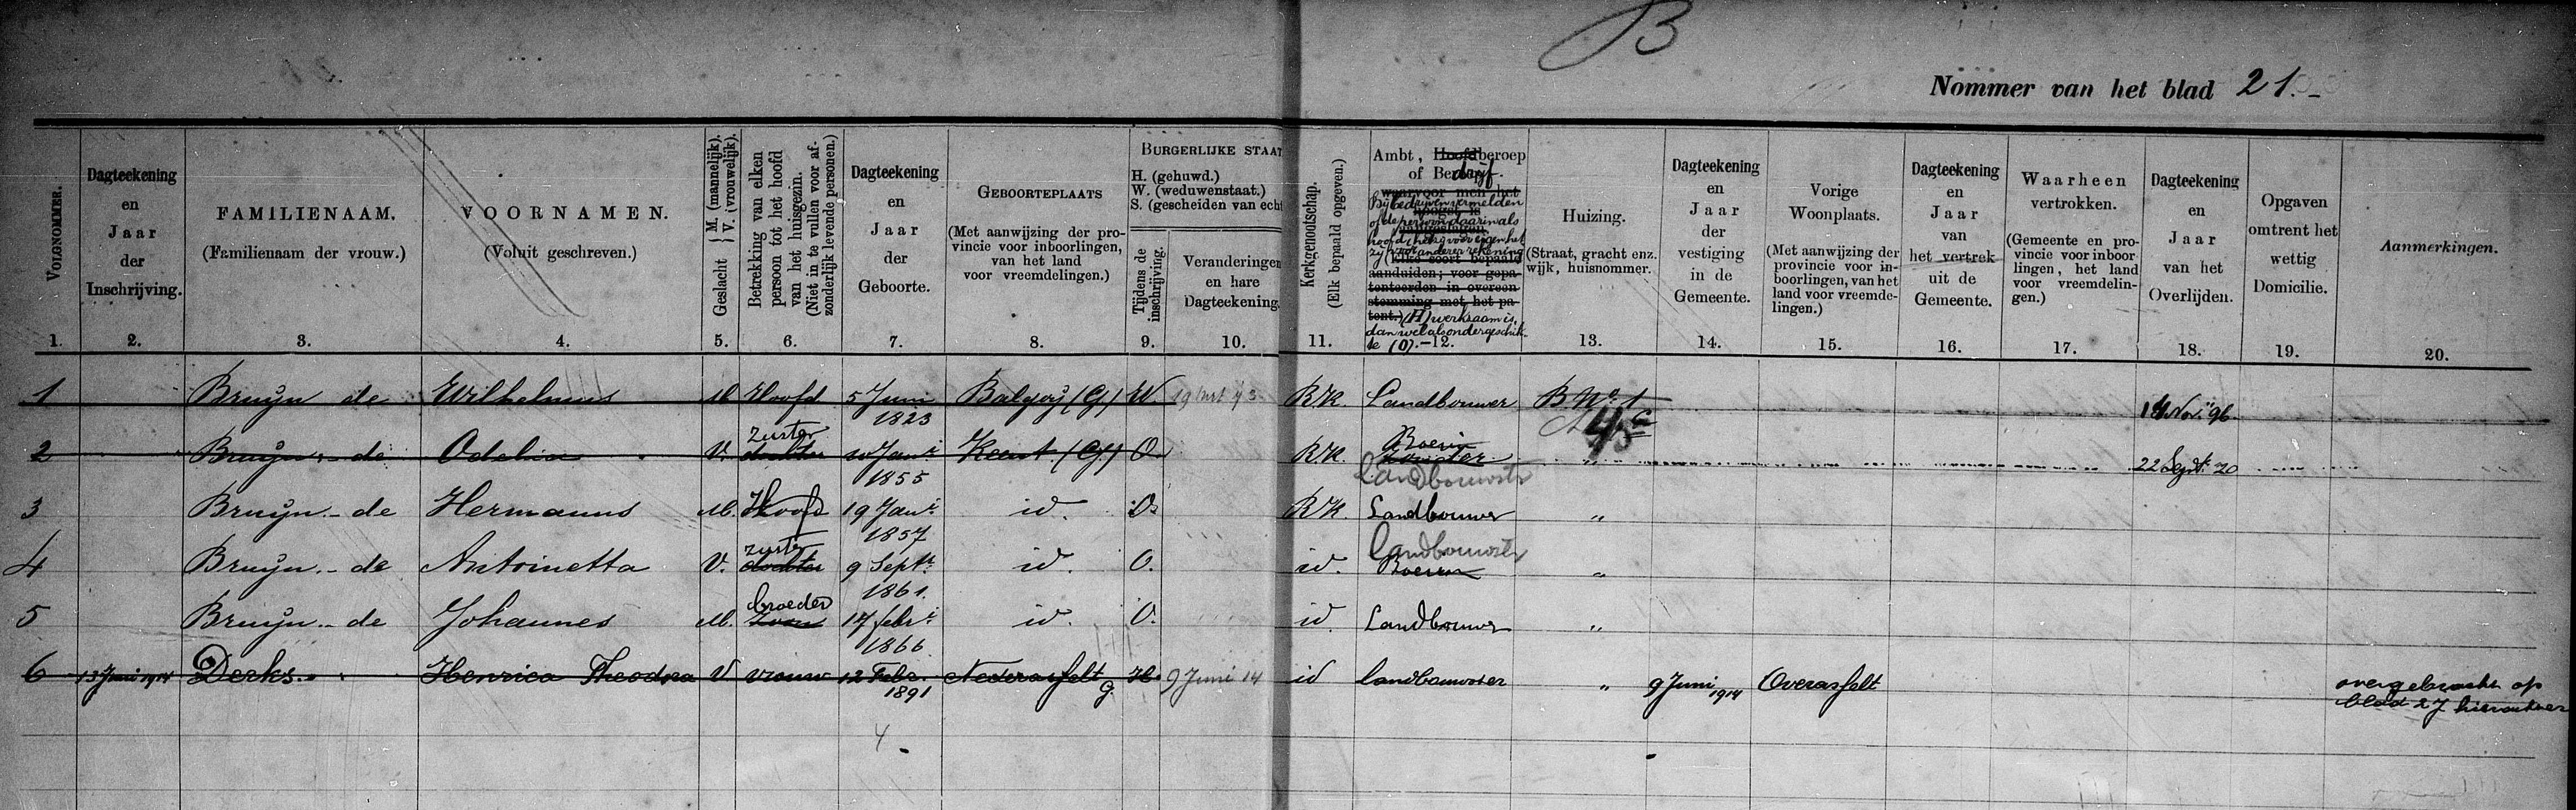 B
Nommer van het blad 21.
VOLGNOMMER.
1.
Dagteekening
en
Jaar
der
Inschrijving.
2.
FAMILIENAAM.
(Familienaam der vrouw.)
3.
VOORNAMEN.
(Voluit geschreven.)
4.
Geslacht { M. (mannelijk). V. (vrouwelijk).
5.
Betrekking van elken
persoon tot het hoofd
van het huisgezin.
(Niet in te vullen voor af-
zonderlijk levende personen.)
6.
Dagteekening
en
Jaar
der
Geboorte.
7.
GEBOORTEPLAATS
(Met aanwijzing der pro-
vincie voor inboorlingen,
van het land
voor vreemdelingen.)
8.
BURGERLIJKE STAAT
H. (gehuwd.)
W. (weduwenstaat.)
S. (gescheiden van echt
Tijdens de
inschrijving.
9.
Veranderingen
en hare
Dagteekening.
10.
Kerkgenootschap.
(Elk bepaald opgeven.)
11.
Ambt, Hoofdberoep
of Bedrijf.
waarvoor men het
Bij bedrijven vermelden
of de persoon daarin als
hoofd (hetzij voor eigen het
zij voor anderer rekening
(Elke soort bepaald
aanduiden; voor gepa-
tenteerden in overeen-
stemming met het pa-
tent.) (H) werkzaam is,
dan wel als ondergeschik-
te (O).-12.
Huizing.
(Straat, gracht enz.
wijk, huisnommer.
13.
Dagteekening
en
Jaar
der
vestiging
in de
Gemeente.
14.
Vorige
Woonplaats.
(Met aanwijzing der
provincie voor in-
boorlingen, van het
land voor vreemde-
lingen.)
15.
Dagteekening
en
Jaar
van
het vertrek
uit de
Gemeente.
16.
Waarheen
vertrokken.
(Gemeente en pro-
vincie voor inboor
lingen, het land
voor vreemdelin-
gen.)
17.
Dagteekening
en
Jaar
van het
Overlijden.
18.
Opgaven
omtrent het
wettig
Domicilie.
19.
Aanmerkingen.
20.
1 Bruijn de Wilhelmus M. Hoofd 5 Juni 1823 Balgoij (G) W. R.K. Landbouwer B No. 1 14 Nov. 96
A 45c
2 Bruijn de Odelia V. dochter zuster 20 Jan. 1855 Keent (G) O. R.K. Boerin Landbouwster " 22 Sept. 20
3 Bruijn de Hermanus M. Hoofd 19 Jan. 1857 id. O. R.K. Landbouwer "
4 Bruijn de Antoinetta V. dochter zuster 9 Sept. 1861. id. O. id. Boerin Landbouwster "
5 Bruijn de Johannes M. Zoon broeder 17 febr. 1866 id. O. id. Landbouwer "
6 13 Juni 1914 Derks. Henrica Theodora V vrouw 12 Febr. 1891 Nederasselt G. H. 9 Juni 14 id landbouwster " 9 Juni 1914 Overasselt overgebracht op
blad 27 hierachter
4